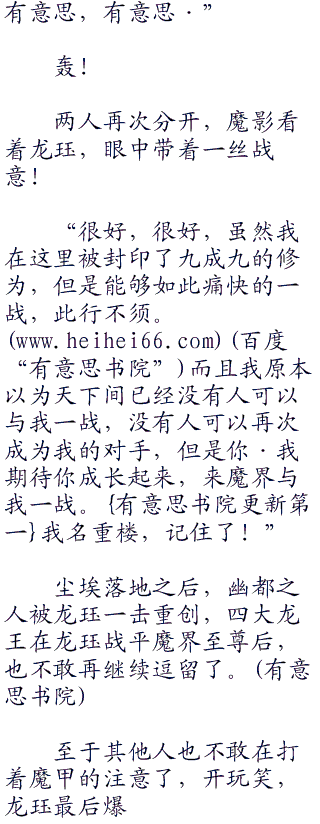 有意思，有意思·”
轰！
两人再次分开，魔影看
着龙珏，眼中带着一丝战
意！
“很好，很好，虽然我
在这里被封印了九成九的修
为，但是能够如此痛快的一
战，此行不须。
(www.heihei66.com)(百度
“有意思书院”)而且我原本
以为天下间已经没有人可以
与我一战，没有人可以再次
成为我的对手，但是你·我
期待你成长起来，来魔界与
我一战。{有意思书院更新第
一}我名重楼，记住了！”
尘埃落地之后，幽都之
人被龙珏一击重创，四大龙
王在龙珏战平魔界至尊后，
也不敢再继续逗留了。(有意
思书院)
至于其他人也不敢在打
着魔甲的注意了，开玩笑，
龙珏最后爆